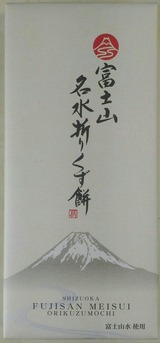 富士山
名水折りくず餅
SHIZUOKA
FUJISAN MEISUI
ORIKUZUMOCHI
富士山水 使用